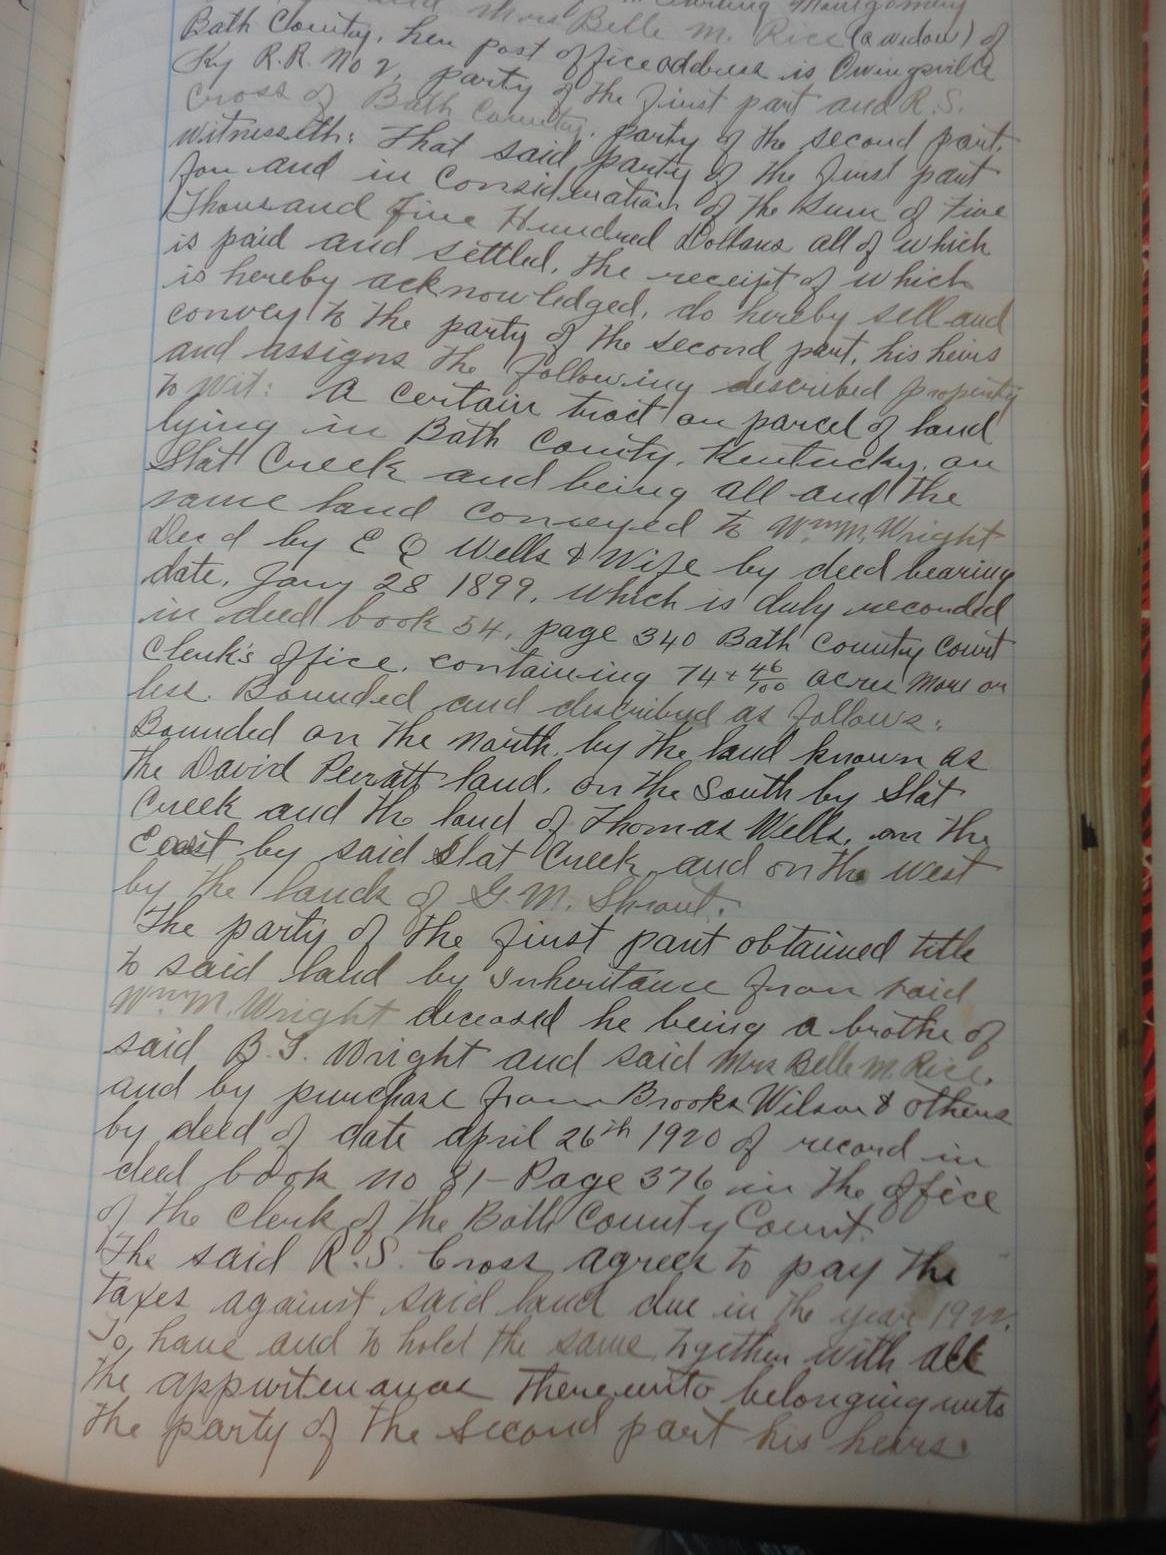 Sterling Montgomery
and Mrs Belle M. Rice (a widow) of
Bath County, her post office address is Owingsville
Ky R.R. No 2, party of the first part and R.S.
Cross of Bath County, party of the second part.
Witnesseth: That said party of the first part
for and in consideration of the sum of Five
Thousand Five Hundred Dollars all of which
is paid and settled, the receipt of which
is hereby acknowledged, do hereby sell and
convey to the party of the second part, his heirs
and assigns the following described property
to wit: A certain tract or parcel of land
lying in Bath County, Kentucky, on
Slat Creek and being all and the
same land conveyed to Wm M. Wright
Decd by E Q Wells & Wife by deed bearing
date, Jany 28 1899, which is duly recorded
in deed book 54, page 340 Bath County Court
Clerk's office. containing 74 + 46/100 acres more or
less. Bounded and described as follows:
Bounded on the North, by the land known as
the David Perratt land, on the South by Slat
Creek and the land of Thomas Wells, on the
East by said Slat Creek and on the West
by the lands of G.M. Shrout.
The party of the first part obtained title
to said land by Inheritance from said
Wm M. Wright deceased he being a brothe of
said B.T. Wright and said Mrs Belle M. Rice.
and by purchase from Brooks Wilson & others
by deed of date April 26th 1920 of record in
deed book no 81 - Page 376 in the office
of the Clerk of the Bath County Court.
The said R.S. Cross agrees to pay the
taxes against said land due in the year 1922.
To have and to hold the same, together with all
the appurtenance thereunto belonging unto
the party of the second part his heirs